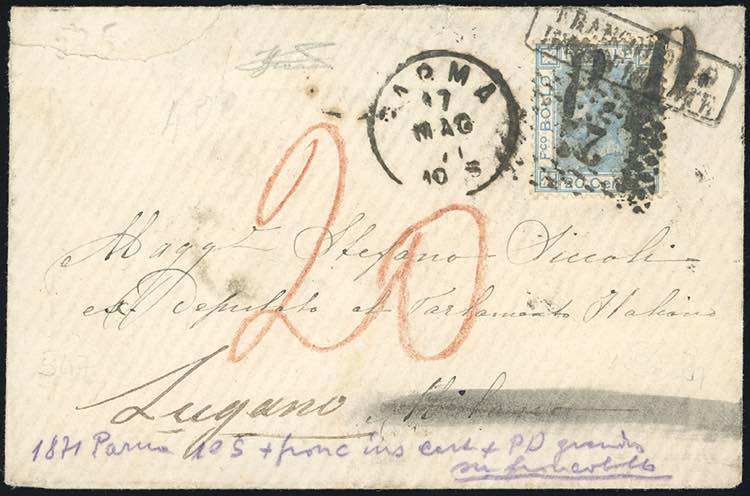 FRANCOBOLLO
INSUFFICIENTE
PARMA
17
MAG
71
10 S
Fco BOLLO
20 Cent
20
Maggre Stefano Siccoli
ex Deputato al Parlamento Italiano
Lugano Milano
1871 Parma 10 S + franc ins cert + PD grande
su francobollo